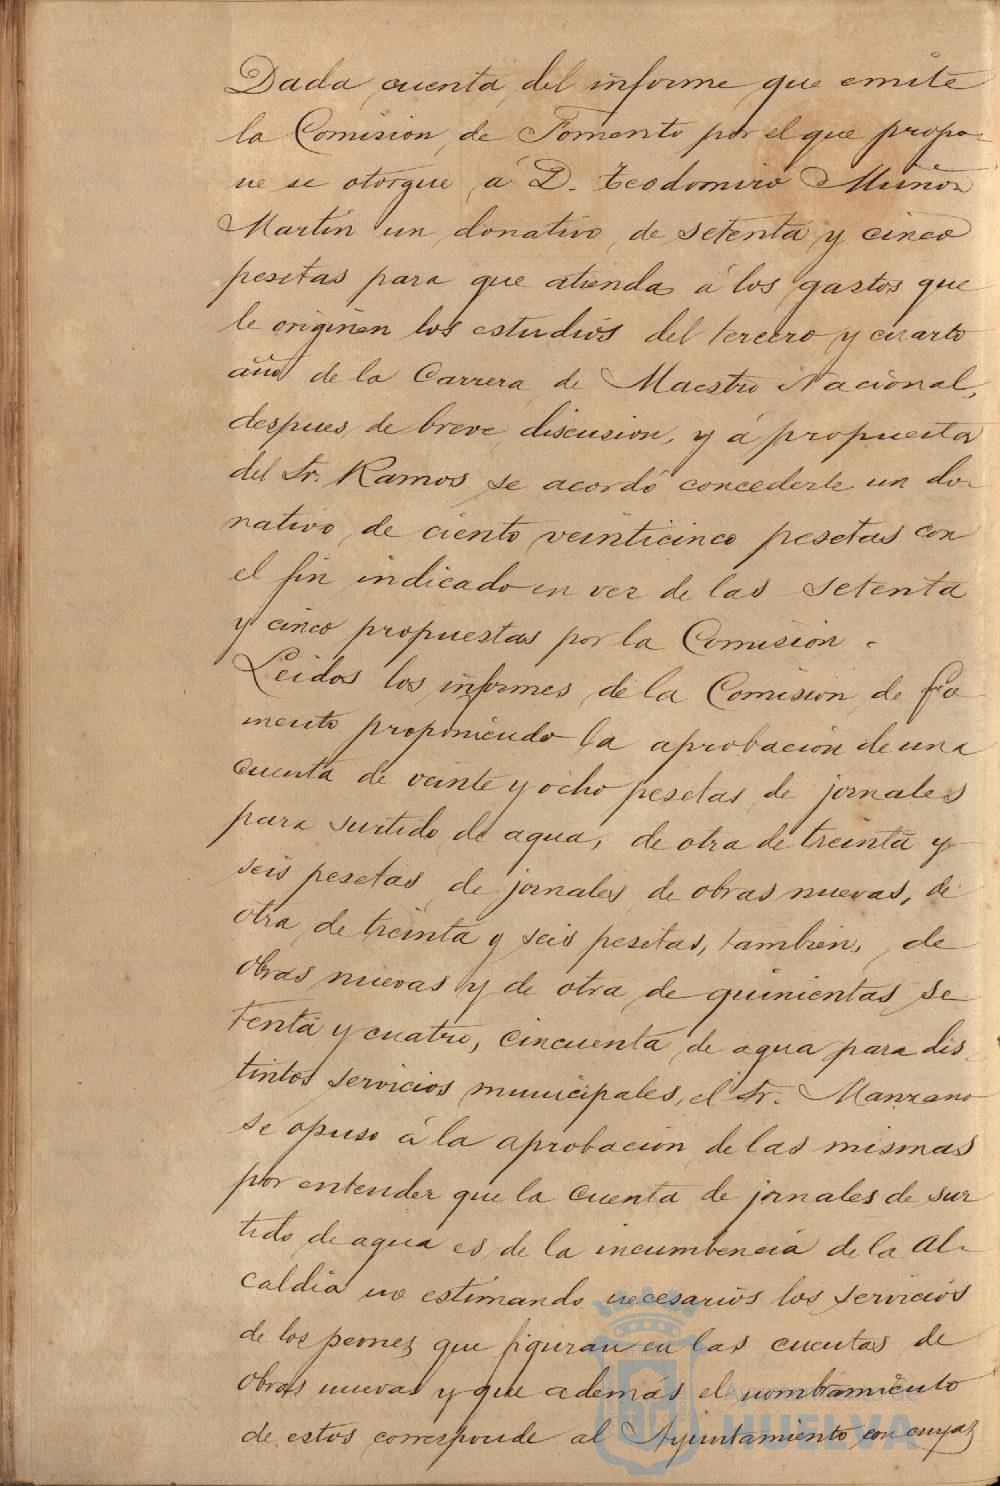 Dada cuenta del informe que emite
la Comision de Fomento por el que propo-
ne se otorgue á D. Teodomiro Muñoz
Martin un donativo de setenta y cinco
pesetas para que atienda á los gastos que
le originen los estudios del tercero y cuarto
año de la Carrera de Maestro Nacional,
despues de breve discusion, y á propuesta
del Sr. Ramos se acordó concederle un do-
nativo de ciento veinticinco pesetas con
el fin indicado en vez de las setenta
y cinco propuestas por la Comision.
Leidos los informes de la Comision de Fo-
mento proponiendo la aprobacion de una
cuenta de veinte y ocho pesetas de jornales
para surtido de agua, de otra de treinta y
seis pesetas de jornales de obras nuevas, de
otra de treinta y seis pesetas, tambien, de
obras nuevas y de otra de quinientas se
tenta y cuatro, cincuenta de agua para dis-
tintos servicios municipales, el Sr. Manzano
se opuso á la aprobacion de las mismas
por entender que la cuenta de jornales de sur
tido de agua es de la incumbencia de la Al-
caldia no estimando necesarios los servicios
de los peones que figuran en las cuentas de
obras nuevas y que ademas el nombramiento
de estos corresponde al Ayuntamiento con cuyas
Ayuntamiento de
HUELVA